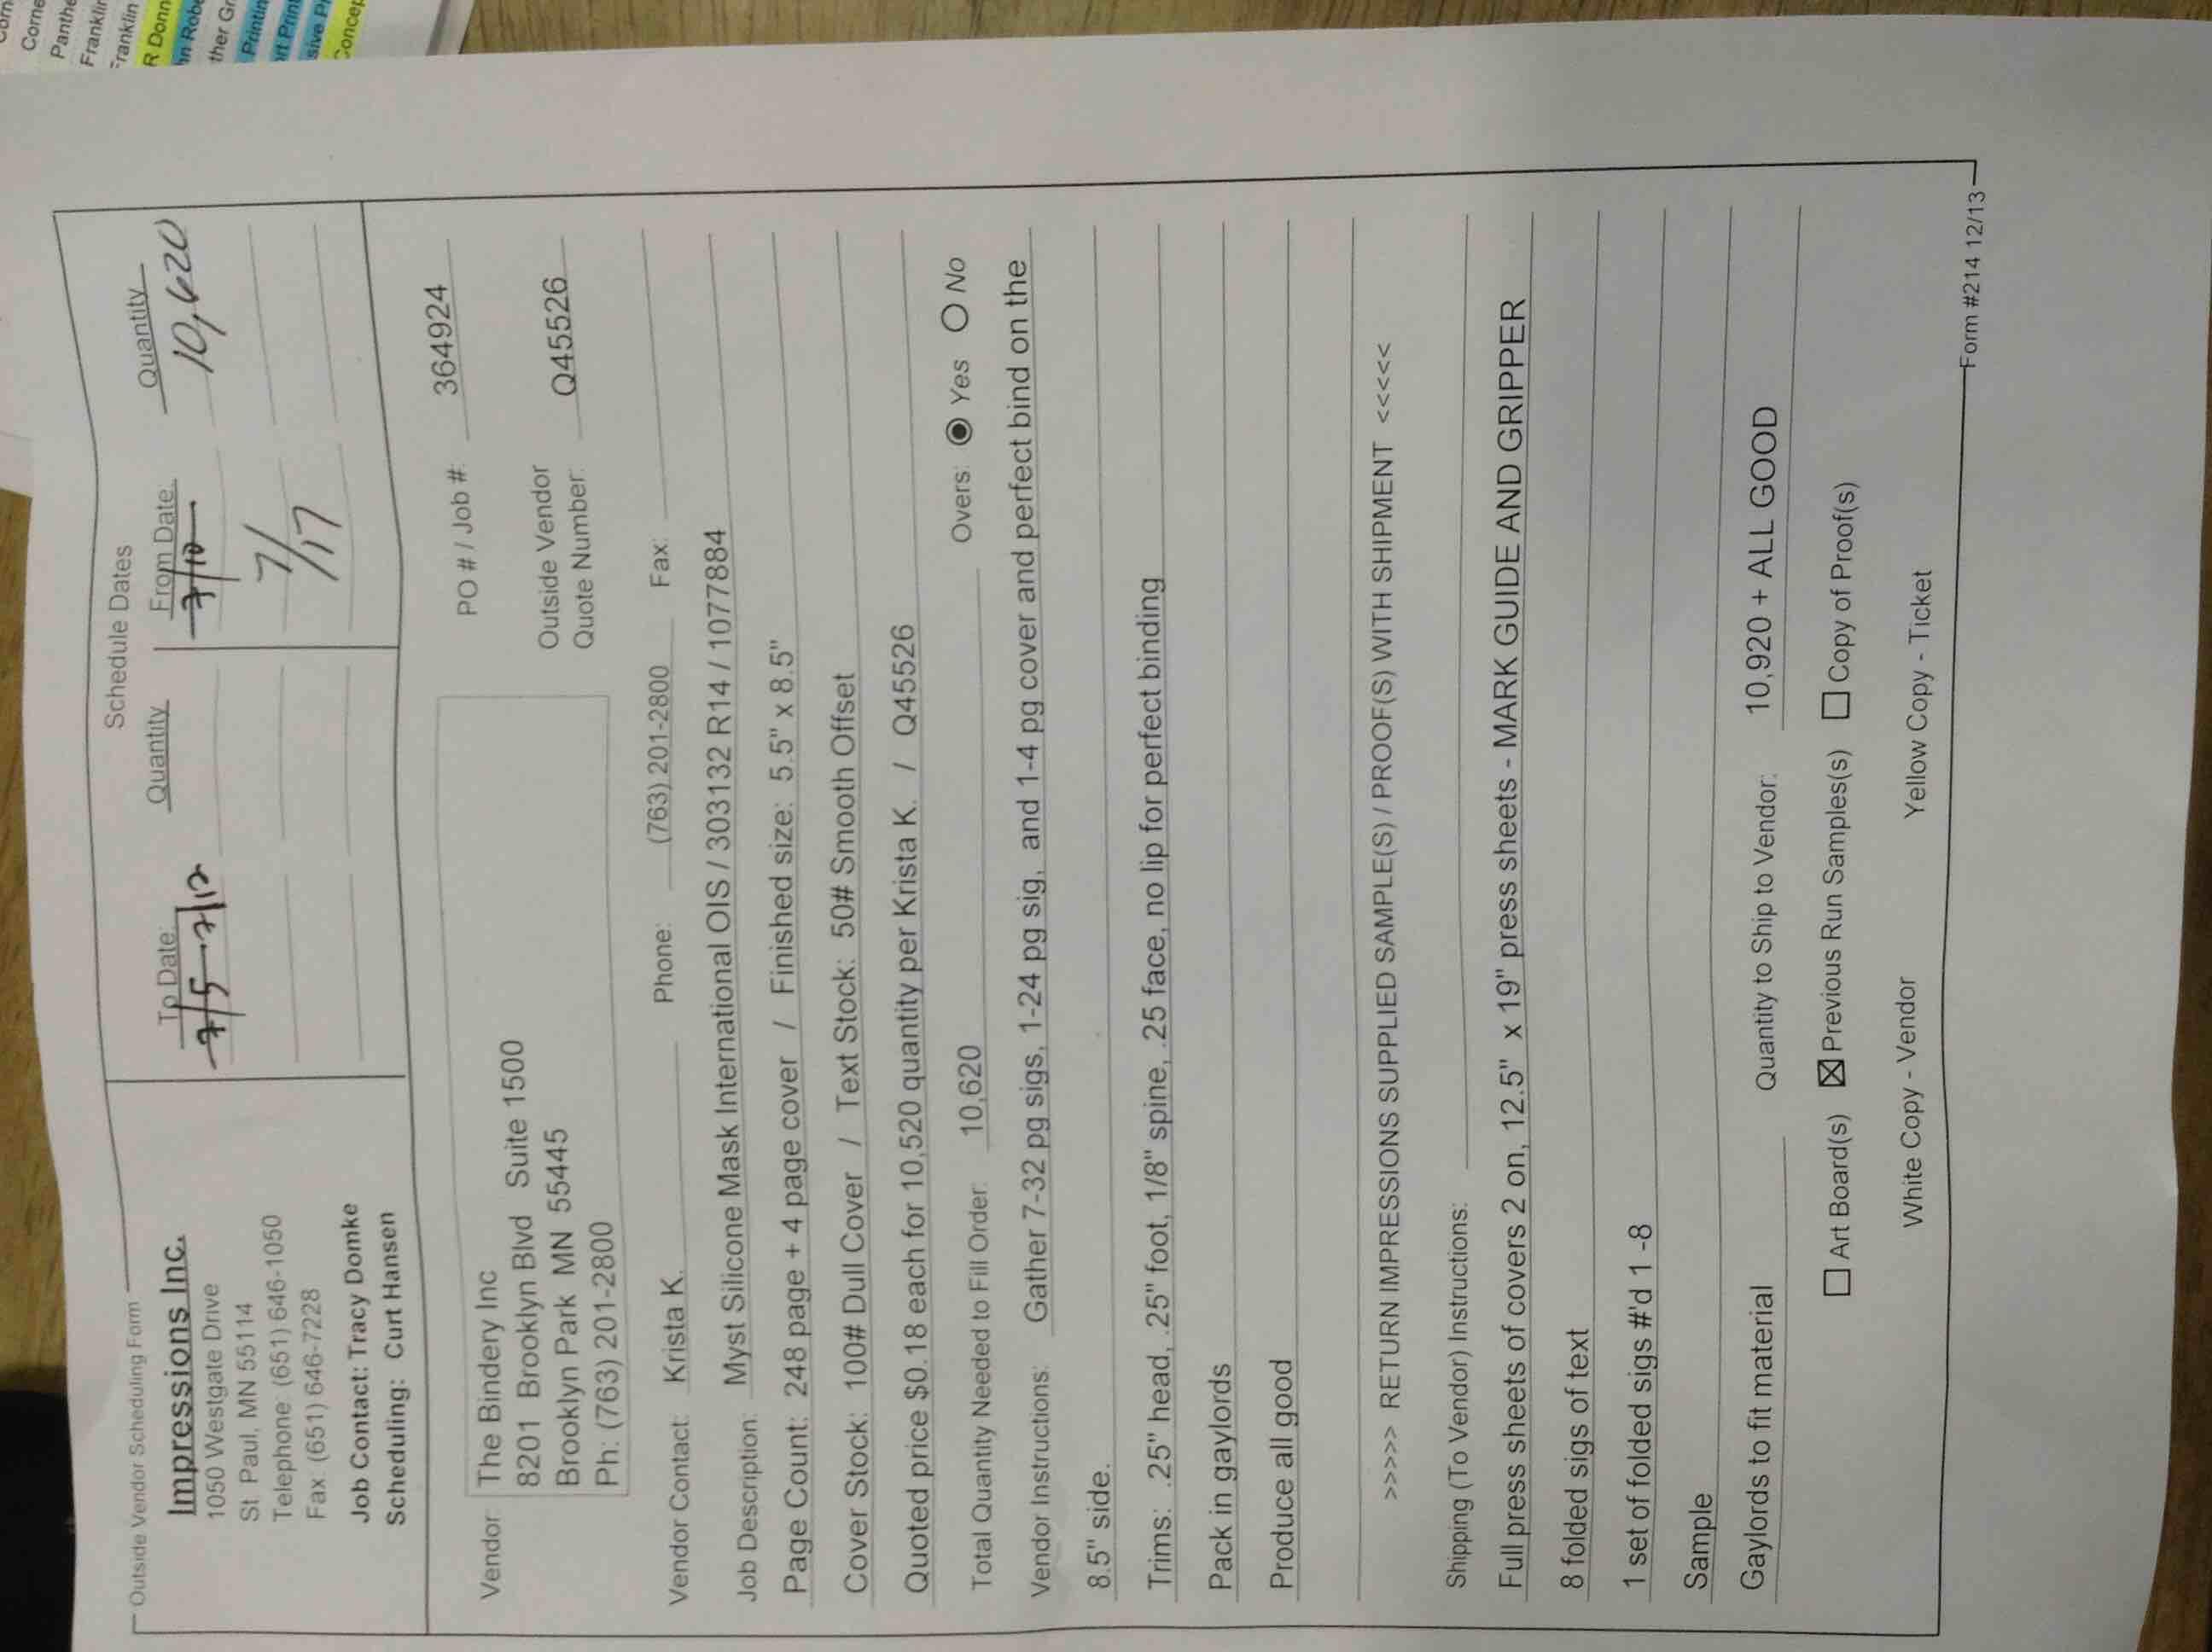 Outside Vendor Scheduling Form
Impressions Inc.
1050 Westgate Drive
St. Paul, MN 55114
Telephone: (651) 646-1050
Fax: (651) 646-7228
Job Contact: Tracy Domke
Scheduling: Curt Hansen
Schedule Dates
To Date: Quantity From Date: Quantity
7/5 7/12 7/10 10,620
7/17
Vendor: The Bindery Inc
8201 Brooklyn Blvd Suite 1500
Brooklyn Park MN 55445
Ph: (763) 201-2800
PO # / Job #: 364924
Outside Vendor
Quote Number: Q45526
Vendor Contact: Krista K. Phone: (763) 201-2800 Fax:
Job Description: Myst Silicone Mask International OIS / 303132 R14 / 1077884
Page Count: 248 page + 4 page cover / Finished size: 5.5" x 8.5"
Cover Stock: 100# Dull Cover / Text Stock: 50# Smooth Offset
Quoted price $0.18 each for 10,520 quantity per Krista K. / Q45526
Total Quantity Needed to Fill Order: 10,620 Overs: Yes No
Vendor Instructions: Gather 7-32 pg sigs, 1-24 pg sig, and 1-4 pg cover and perfect bind on the
8.5" side.
Trims: .25" head, .25" foot, 1/8" spine, .25 face, no lip for perfect binding
Pack in gaylords
Produce all good
>>>>> RETURN IMPRESSIONS SUPPLIED SAMPLE(S) / PROOF(S) WITH SHIPMENT <<<<<
Shipping (To Vendor) Instructions:
Full press sheets of covers 2 on, 12.5" x 19" press sheets - MARK GUIDE AND GRIPPER
8 folded sigs of text
1 set of folded sigs #'d 1 -8
Sample
Gaylords to fit material Quantity to Ship to Vendor: 10,920 + ALL GOOD
Art Board(s) Previous Run Samples(s) Copy of Proof(s)
White Copy - Vendor Yellow Copy - Ticket
Form #214 12/13
Corne
Panthe
Franklin
Franklin
R Donn
ther Gr
Printin
rt Print
sive Pr
Concep